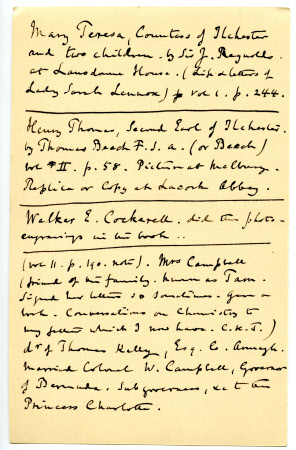 Mary Teresa, Countess of Ilchester
and two children. by Sir J. Reynolds
at Lansdowne House. (Life & letters of
Lady Sarah Lennox) vol 1. p. 244.
Henry Thomas, Second Earl of Ilchester.
by Thomas Beach F. S. A. (or Beach)
vol II. p. 58. Picture at Melbury.
Replica or Copy at Lacock Abbey.
Walker E. Cockerell. did the photo-
engravings in the book ..
(vol 11. p. 190. note). Mrs Campbell
(friend of the family. known as Tam.
Signed her letters so sometimes. gave a
book. Conversations on Chemistry to
my father which I now have. C.K.T.)
dr of Thomas Kelly, Esq. Co. Armagh.
married Colonel W. Campbell, Governor
of Bermuda. Subgoverness, &c to the
Princess Charlotte.